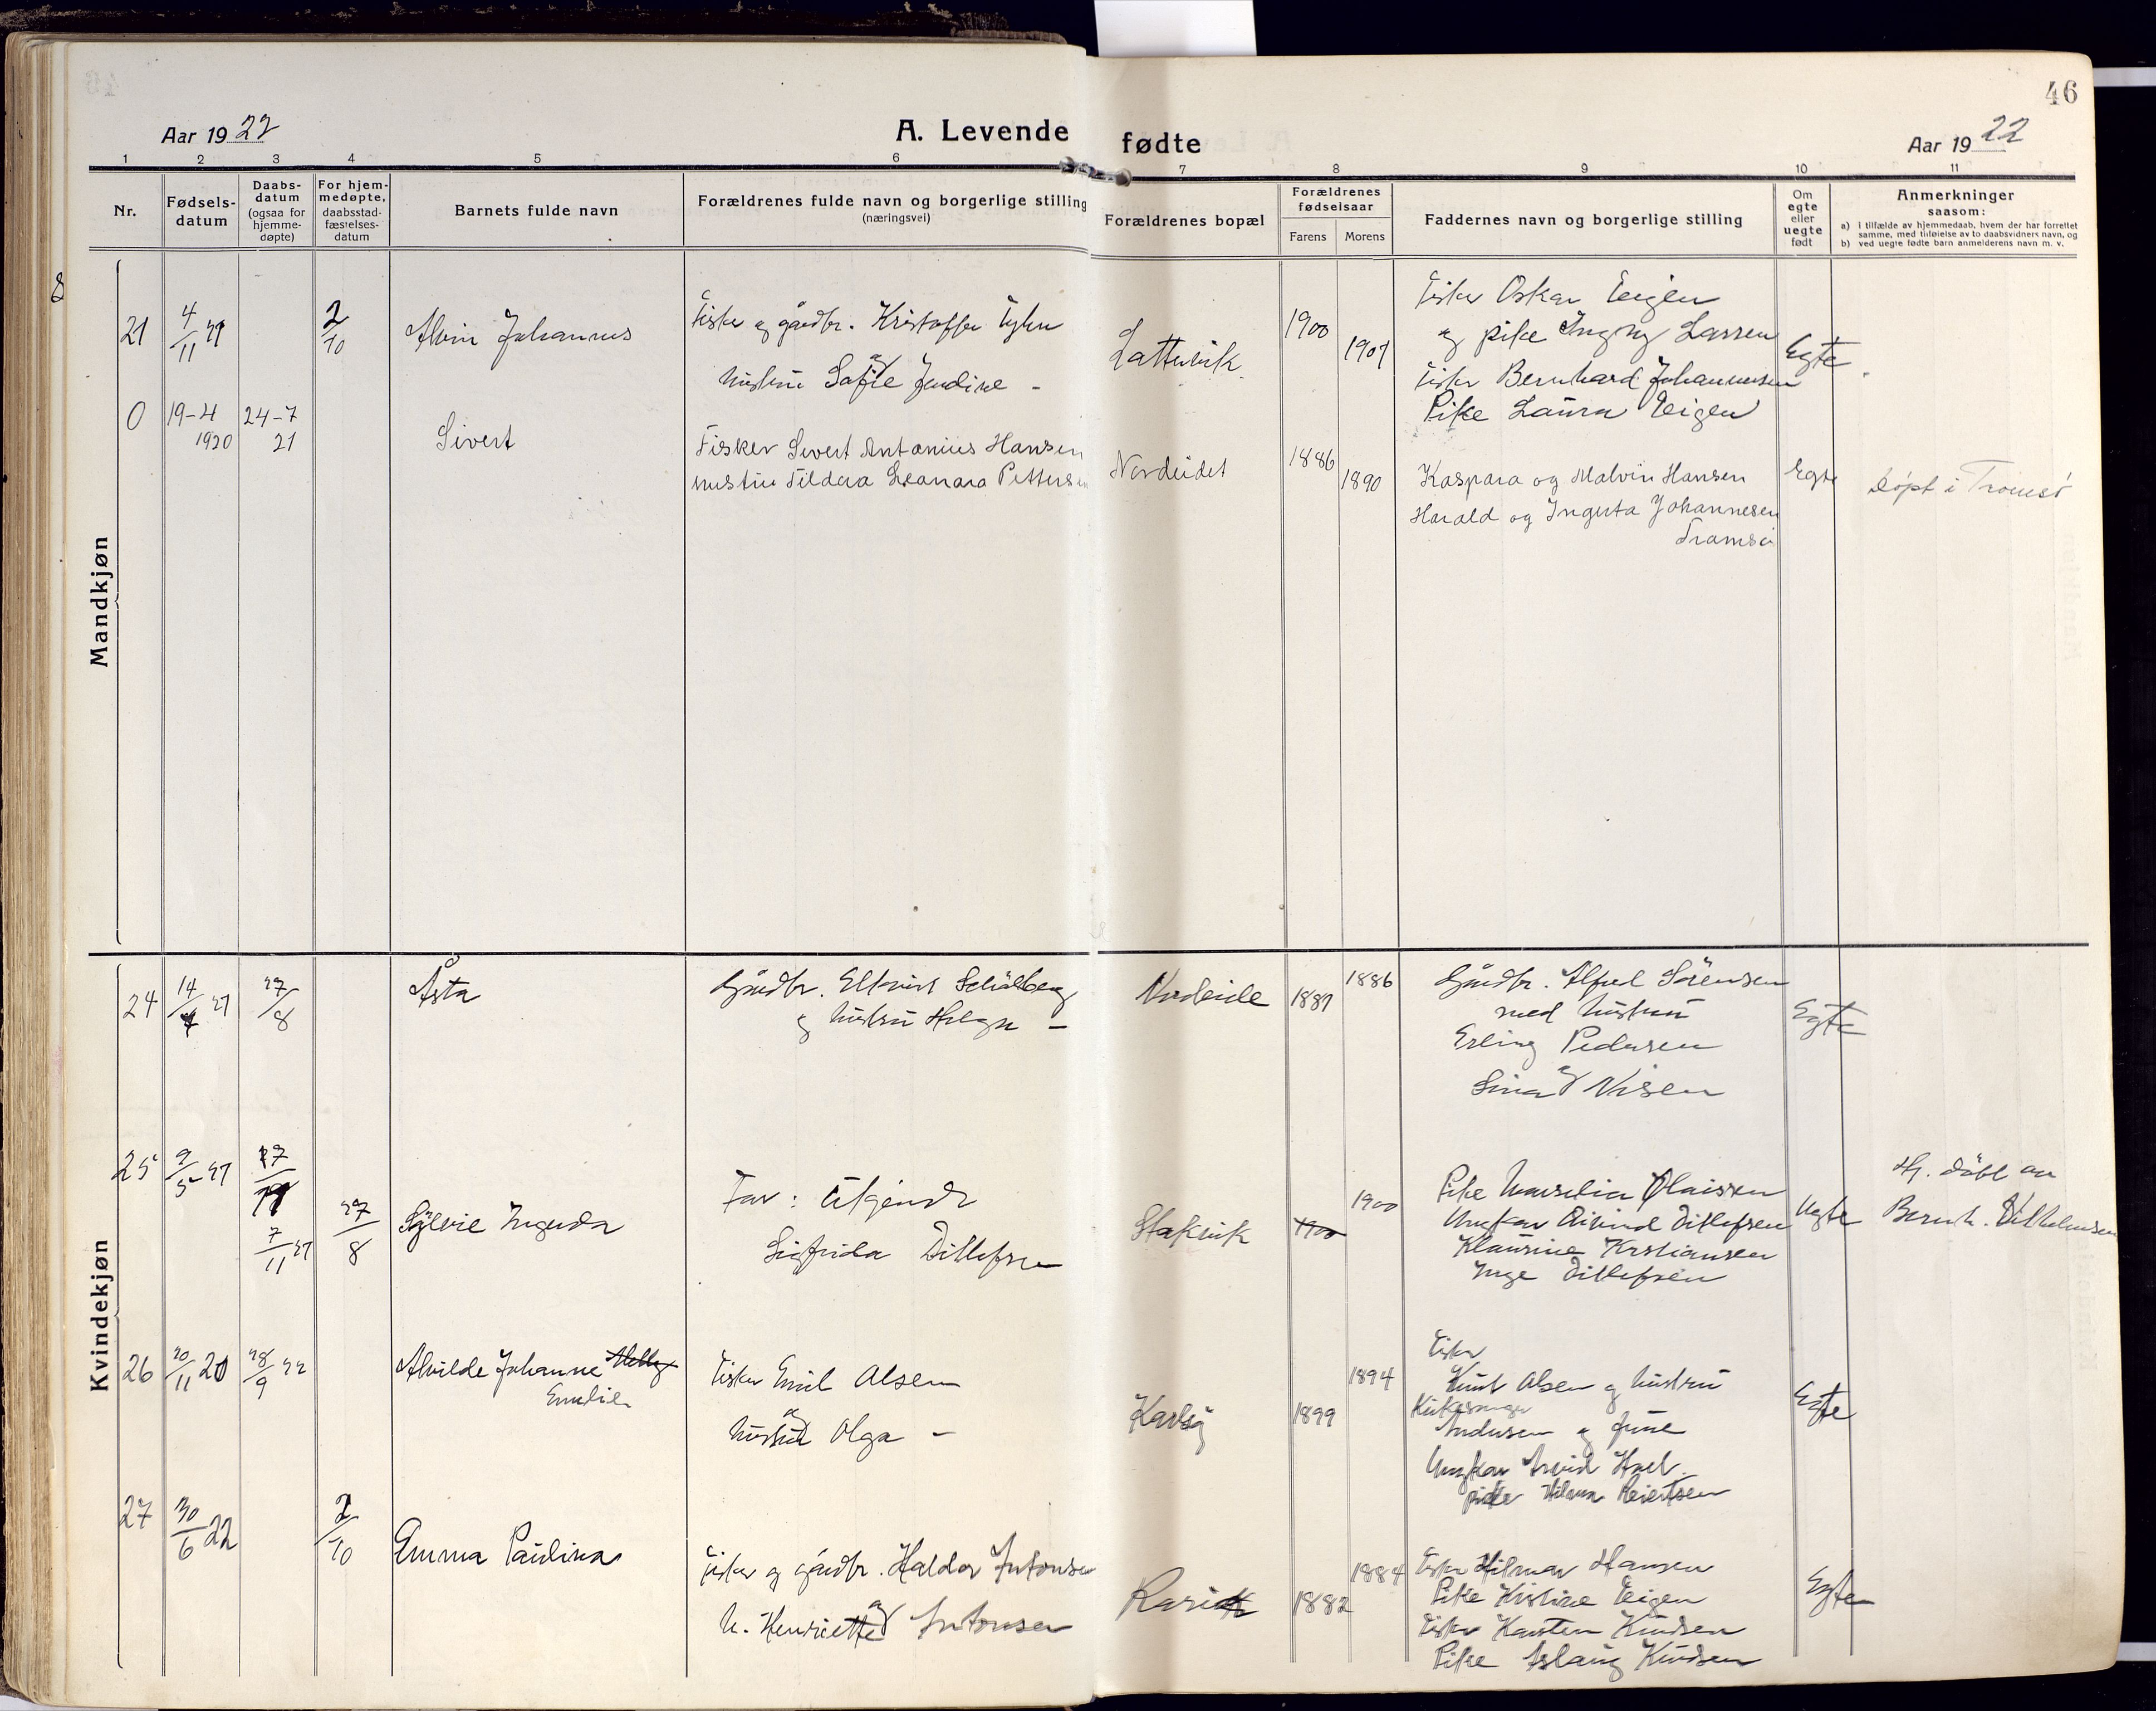 46
Aar 1922
A. Levende fødte
Aar 1922
1 2 3 4 5 6 7 8 9 10 11
Nr.
Fødsels-
datum
Daabs-
datum
(ogsaa for
hjemme-
døpte)
For hjem-
medøpte,
daabsstad-
fæstelses-
datum
Barnets fulde navn
Forældrenes fulde navn og borgerlige stilling
(næringsvei)
Forældrenes bopæl
Forældrenes
fødselsaar
Farens
Morens
Faddernes navn og borgerlige stilling
Om
egte
eller
uegte
født
Anmerkninger
saasom:
a) i tilfælde av hjemmedaab, hvem der har forrettet
samme, med tilføielse av to daabsvidners navn, og
b) ved uegte fødte barn anmelderens navn m. v.
Mandkjøn
21
4/11 21
2/10
Alvin Johannes
Fisker og gårdbr. Kristoffer
hustru Sofie Jendine -
Lattervik
1900
1901
Fisker Oskar Eeigen
og pike Ingny Larsen
Fisker Bernhard Johannessen
Pike Laura Eeigen
Egte
0
19-4
1920
24-7
21
Sivert
Fisker Sivert Antonius Hansen
hustru Tildora Leonora Pettersen
Nordeidet
1886
1890
Kaspara og Malvin Hansen
Harald og Ingerta Johannesen
Tromsø
Egte
Døpt i Tromsø
Kvindekjøn
24
14/4 21
27/8
Åsta
Gårdbr. Schølberg
og hustru Helga -
Nordeide
1887
1886
Gårdbr. Alfred Sørensen
med hustru
Erling Pedersen
Lina Nilsen
Egte
25
2/5 21
7/11 21
27/8
Sylvie Ingerda
Far: Utgjendt
Sigfrida Ditlefsen
Stakvik
1900
1900
Pike Marselia Olaisen
Ungkar Eivind Ditlefsen
Klausine Krstiansen
Inge Ditlefsen
Uegte
Hj. døbt av
Bernh. Vilhelmsen
26
20/11 20
28/9 22
Alvilde Johanne
Emelie
Fisker Emil Olsen
og hustru Olga -
Karlsøy
1899
1894
Fisker
Knut Olsen og hustru
Kirkesanger
Andersen og frue
Ungkar Arvid Hoel
pike Hilma Reiertsen
Egte
27
30/6 22
2/10
Emma Paulina
Fisker og gårdbr. Haldor Antonsen
og h. Henriette Antonsen
1882
1884
Fisker Hilmar Hansen
Pike Kristine Eeigen
Fisker Karsten Knudsen
Pike Aslaug Knudsen
Egte